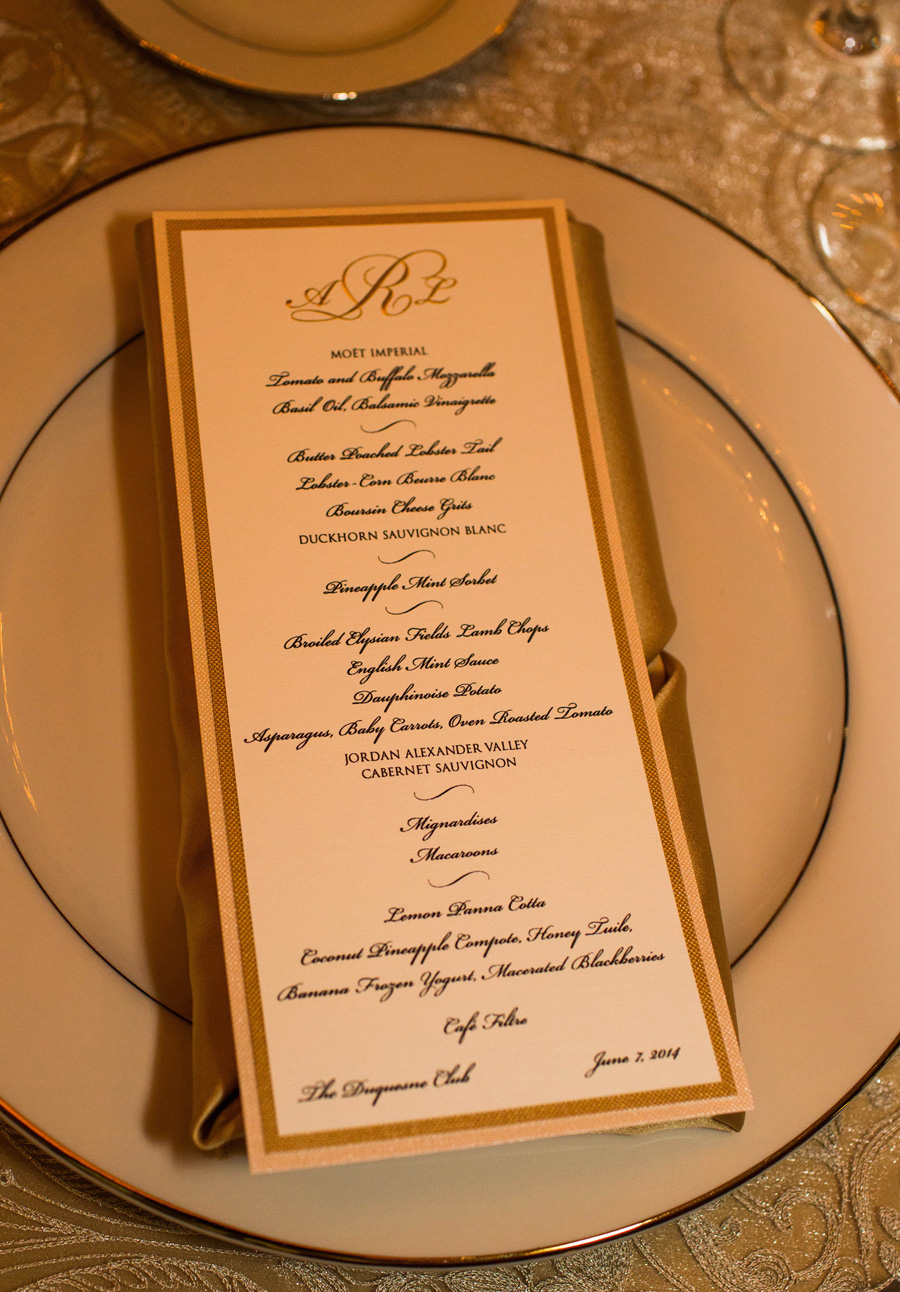 ARL
MOËT IMPERIAL
Tomato and Buffalo Mozzarella
Basil Oil, Balsamic Vinaigrette
Butter Poached Lobster Tail
Lobster-Corn Beurre Blanc
Boursin Cheese Grits
DUCKHORN SAUVIGNON BLANC
Pineapple Mint Sorbet
Broiled Elysian Fields Lamb Chops
English Mint Sauce
Dauphinoise Potato
Asparagus, Baby Carrots, Oven Roasted Tomato
JORDAN ALEXANDER VALLEY
CABERNET SAUVIGNON
Mignardises
Macaroons
Lemon Panna Cotta
Coconut Pineapple Compote, Honey Tuile,
Banana Frozen Yogurt, Macerated Blackberries
Café Filtre
The Duquesne Club June 7, 2014